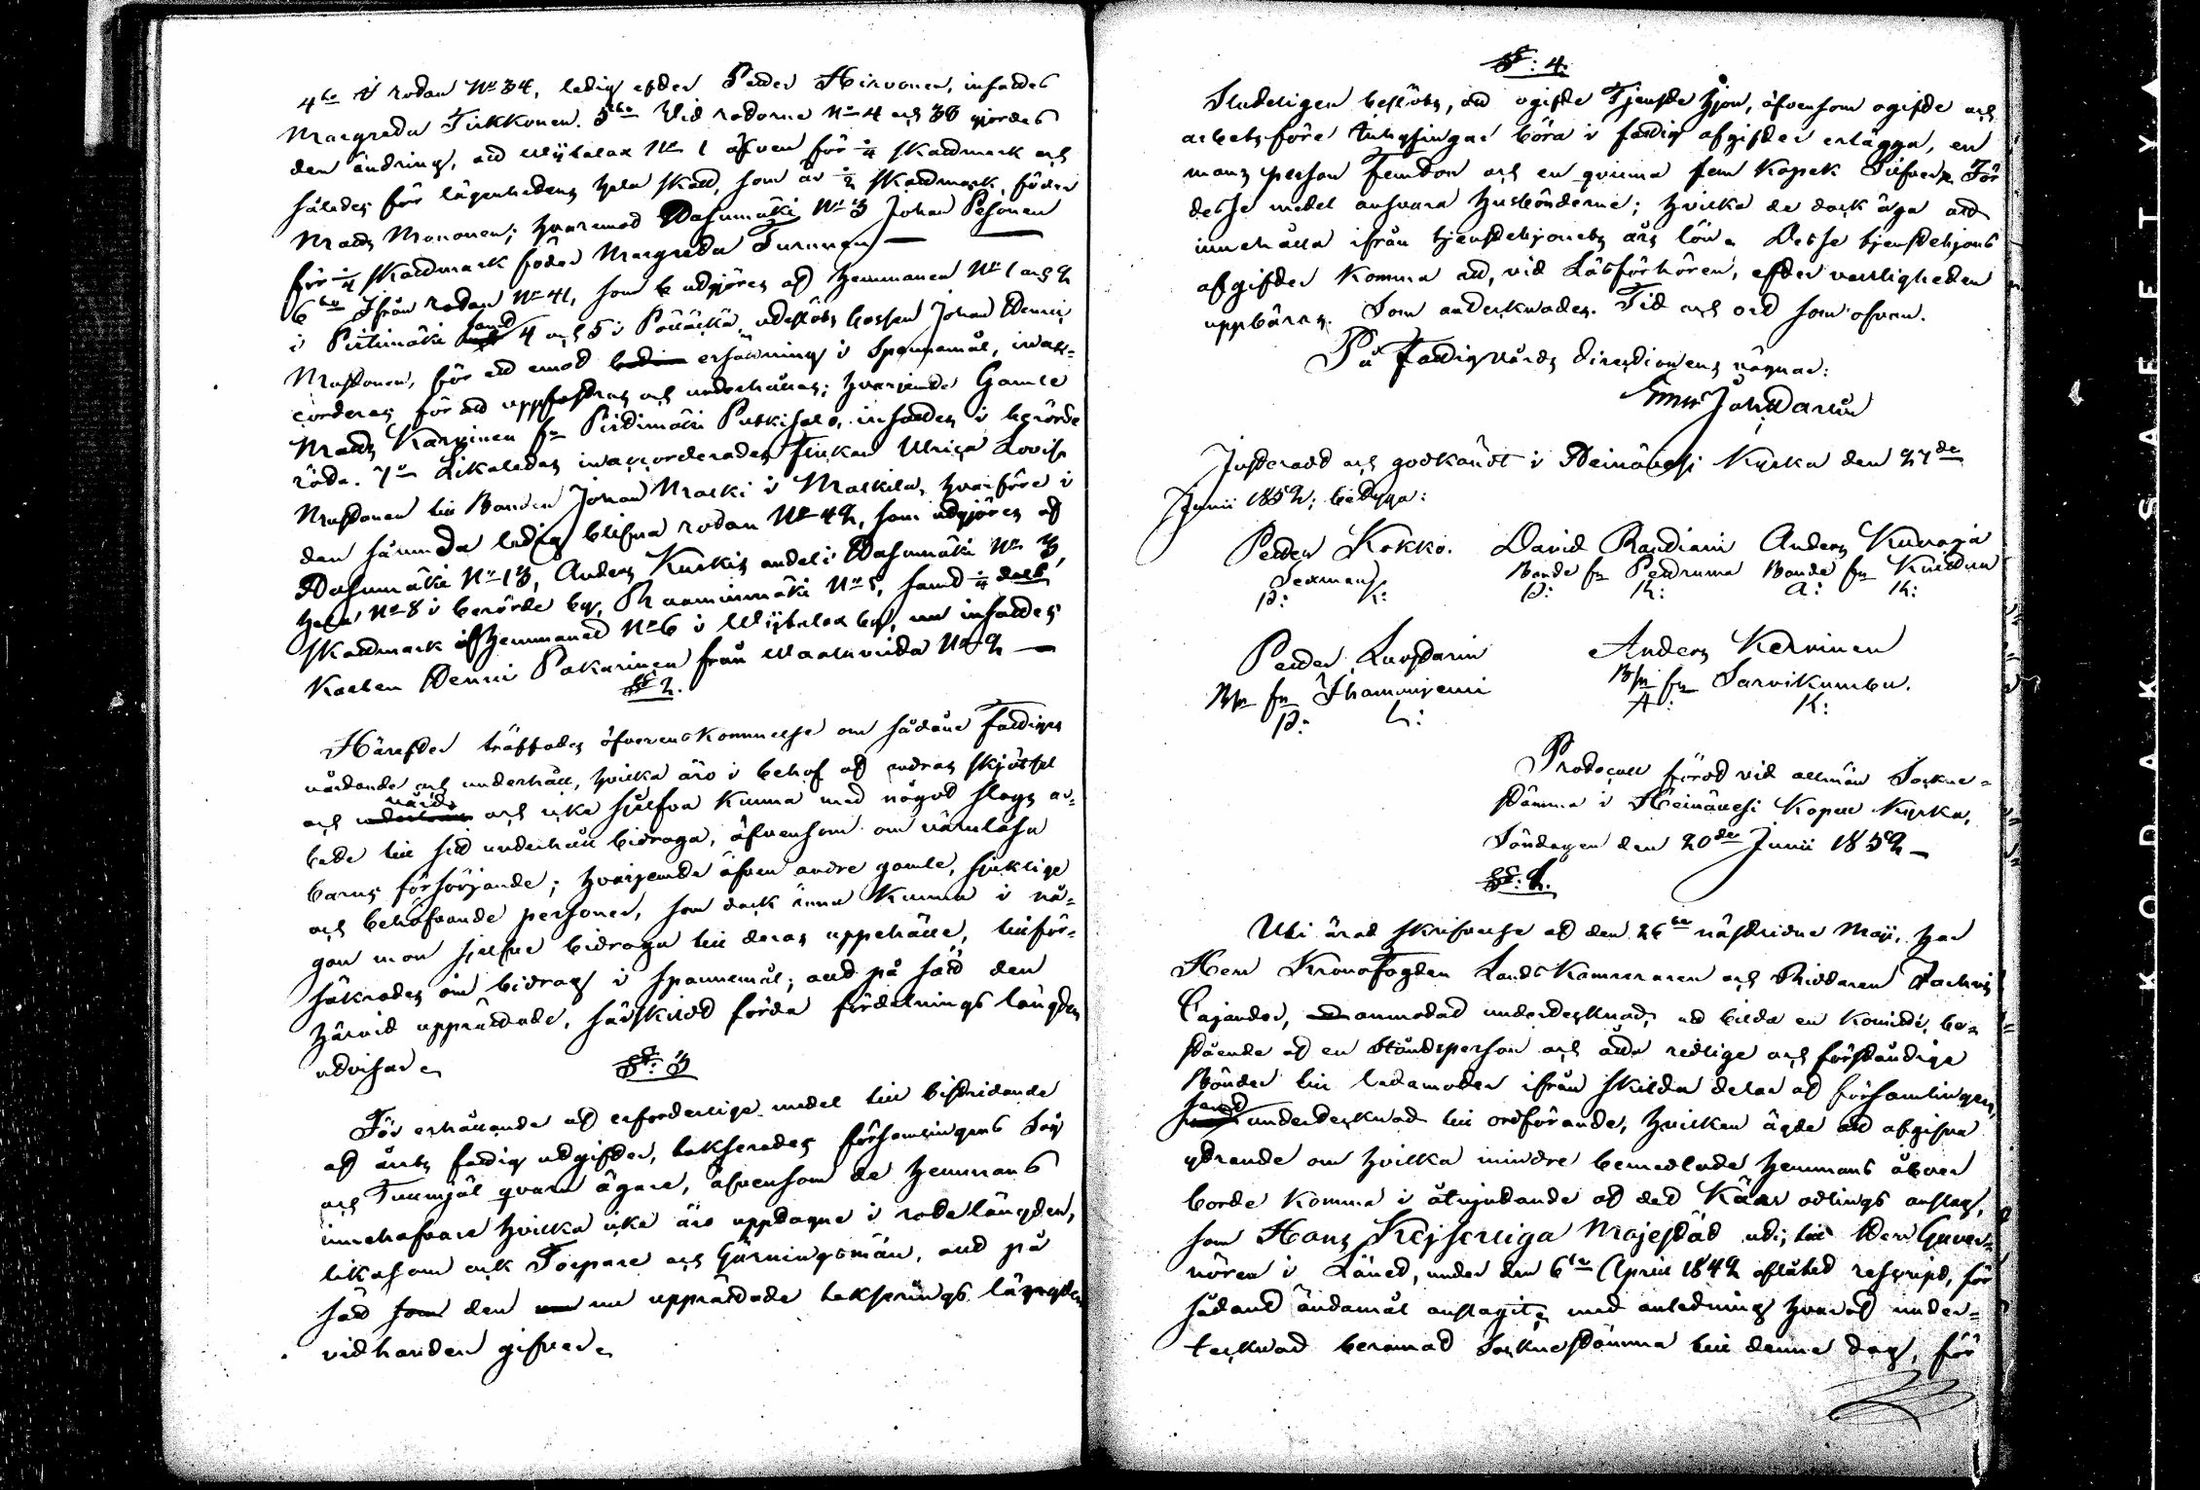 4to I rodan No 34, ledig efter Petter Hirvonen, insattes
Margreta Tirkkonen. 5to Vid rodorne No 4 och 38 gjordes
den ändring, att Wihtalax No 1 äfven för 1/4 skattmark och
således för lägenhetens hela skatt, som är 1/2 skattmark, föder
Matts Mononen; hvaremot Wasumäki No 3 Johan Pesonen
för 1/4 skattmark föder Margreta Turunen —
6to Ifrån rodan No 41, som utgöres af hemmanen No 1 och 2
i Pirtimäki samt 4 och 5 i Pölläkkä, uteslöts gossen Johan Henric
Mustonen, för att emot ersättning i Spannemål, inac-
corderas för att uppfostras och underhållas; hvarjemte Gamle
Matts Karvinen fr Pirtimäki insattes i berörde
rode. 7o Likaledes inaccorderades Flickan Ulrica Lovisa
Mustonen till Bonden Johan Malki i Malkila, hvarföre i
den sålunda ledig blifna rodan No 42, som utgöres af
Wasumäki No 13, Anders Kurkis andel i Wasumäki No 3,
hela No 8 i berörde by, Raminmäki No 5, samt 1/4 dels
skattmark af hemmanet No 6 i Wihtalax by, nu insattes
Karlen Henric Pakarinen från No 2 —
§ 2.
Härefter träffades öfverenskommelse om sådane Fattigas
vårdande och underhåll, hvilka äro i behof af andras skjötsel
och vård och icke sjelfva kunna med något slags ar-
bete till sitt underhåll bidraga, äfvensom om värnlösa
barns försörjande; hvarjemte äfven andre gamle, sjuklige
och behöfvande personer, som dock ännu kunna i nå-
gon mon sjelfve bidraga till deras uppehälle, tillför-
säkrades om bidrag i spannemål; allt på sätt den
härvid upprättade, särskildt förda fördelnings längden
utvisar.
§: 3
För erhållande af erforderlige medel till bestridande
af årets fattig utgifter, taxerades församlingens Såg
och Tullmjöl qvarn ägare, äfvensom de hemmans
innehafvare hvilka icke äro upptagne i rodelängden,
likasom ock Torpare och Gärningsmän, allt på
sätt den nu upprättade taxerings längden
vidhanden gifver.
§: 4.
Sluteligen beslöts, att ogifte Tjenste hjon, äfvensom ogifte och
arbetsföre inhysingar böra i fattig afgifter erlägga, en
mans person Femton och en qvinna fem kopek Silfver. För
desse medel ansvara husbönderne; hvilka de dock äga att
innehålla ifrån tjenstehjonets års lön. Desse tjenstehjons
afgifter komma att, vid Läsförhören, efter vanligheten
uppbäras. Som antecknades. Tid och ort som ofvan.
På Fattigvårds Directionens vägnar:
Justeradt och godkändt i Heinävesi Kyrka den 27de
Junii 1852; betyga:
Petter Kokko. David Rautiain Anders Kuvaja
Sexman Bonde fr Petruma Bonde fr
P: K: D: R: A: K:
Petter Luostarin Anders Kervinen
Bde fr Bde fr Sarvikumbu.
P: L: A: K:
Protocoll fördt vid allmän Sockne-
stämma i Heinävesi Kapell Kyrka,
Söndagen den 20de Junii 1852 —
§: 1.
Uti ärad skrifvelse af den 26te nästvikne Maji, har
Herr Kronofogden Lands Kamreraren och Riddaren Zachris
Cajander, anmodat undertecknad, att bilda en komité, be-
stående af en Ståndsperson och åtta redlige och förståndige
Bönder till ledamöter ifrån skilda delar af församlingen,
samt undertecknad till ordförande, hvilken ägde att afgifva
yttrande om hvilka mindre bemedlade hemmans åboer
borde komma i åtnjutande af det Kärr odlings anslag,
som Hans Kejserliga Majestät uti, till Herr Guver-
nören i Länet, under den 6te April 1842 aflåtet rescript, för
sådant ändamål anslagit; med anledning hvaraf under-
tecknad beramat Socknestämma till denne dag, för